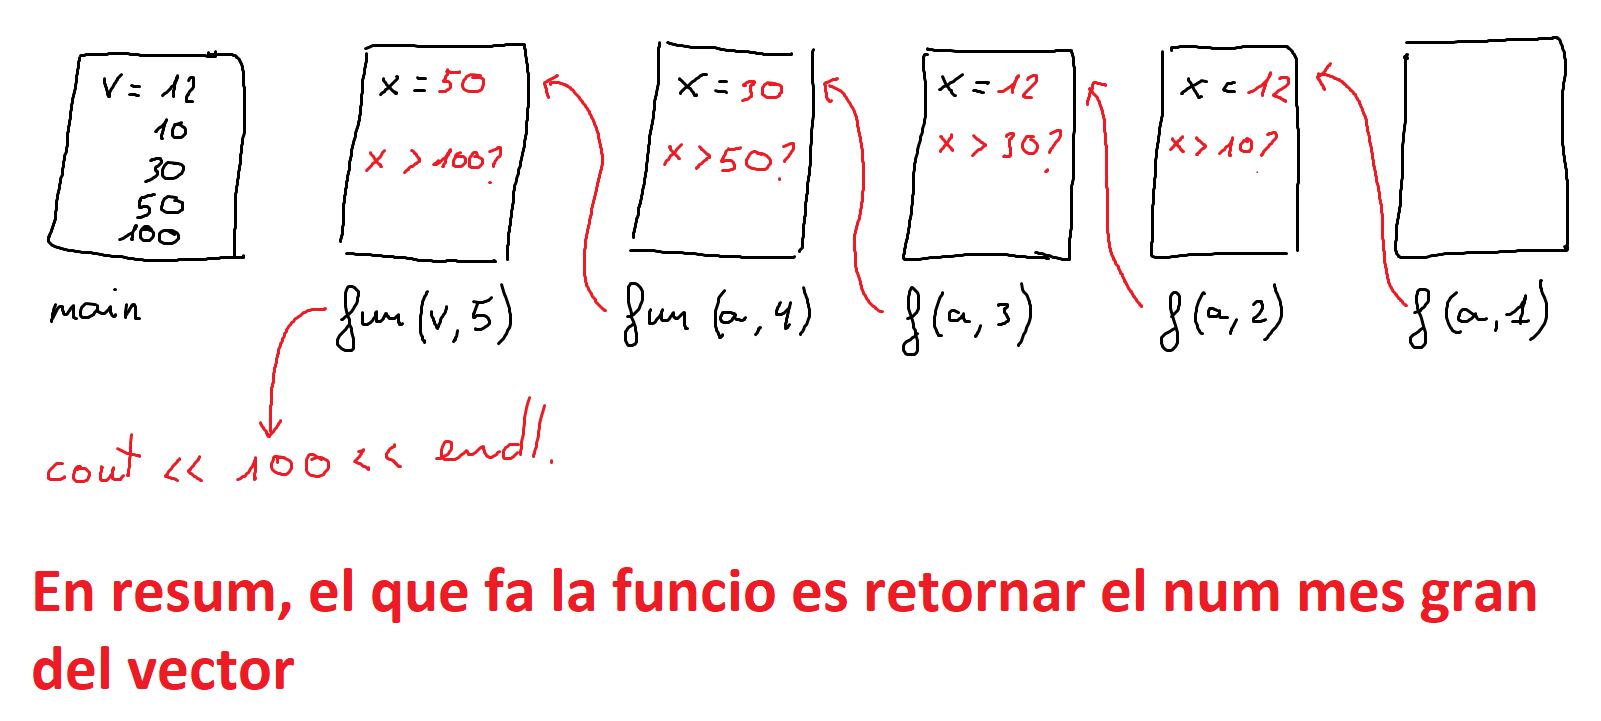 v = 12
10
30
50
100
main
x = 50
x > 100?
fun (v, 5)
x = 30
x > 50?
fun (a, 4)
x = 12
x > 30?
f (a, 3)
x = 12
x > 10?
f (a, 2)
f (a, 1)
cout << 100 << endl.
En resum, el que fa la funcio es retornar el num mes gran
del vector